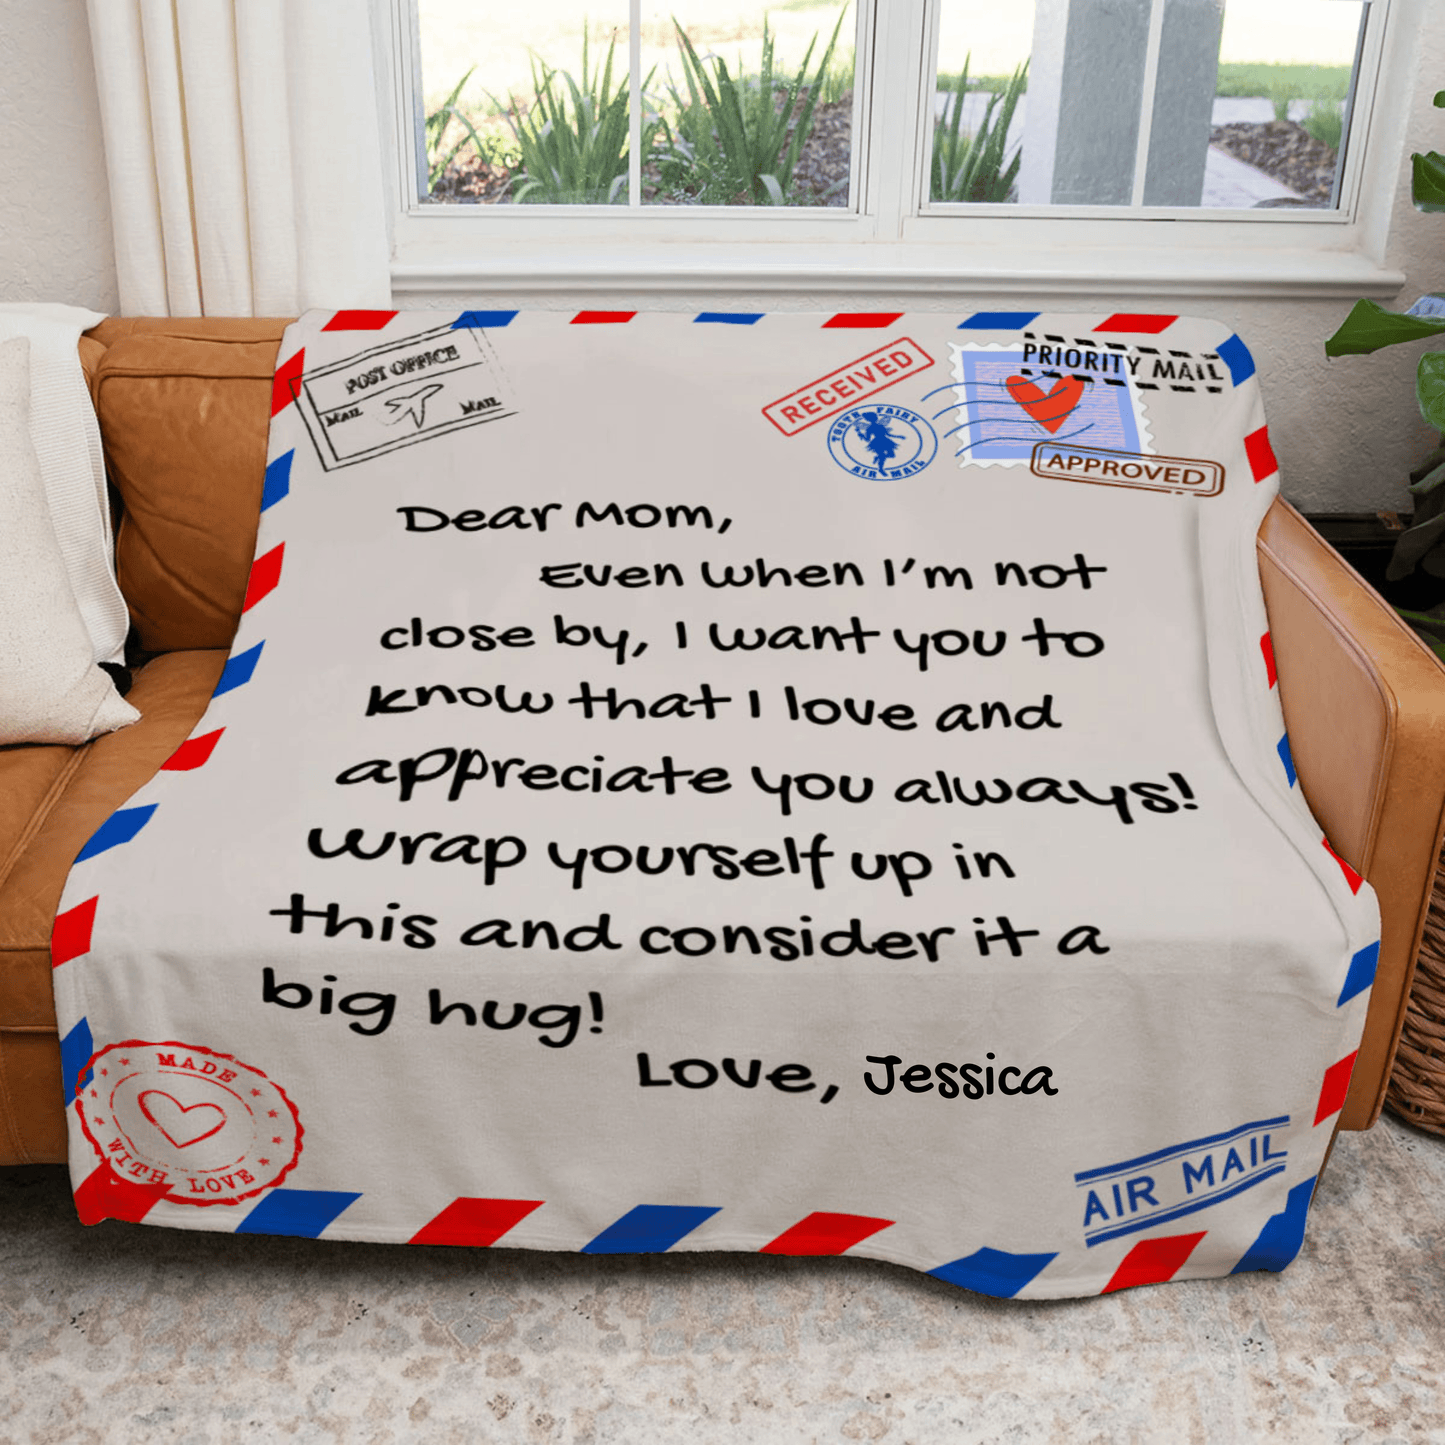 POST OFFICE
MAIL MAIL
RECEIVED
TOOTH FAIRY
AIR MAIL
PRIORITY MAIL
APPROVED
Dear Mom,
Even when I'm not
close by, I want you to
know that I love and
appreciate you always!
Wrap yourself up in
this and consider it a
big hug!
Love, Jessica
MADE
WITH LOVE
AIR MAIL